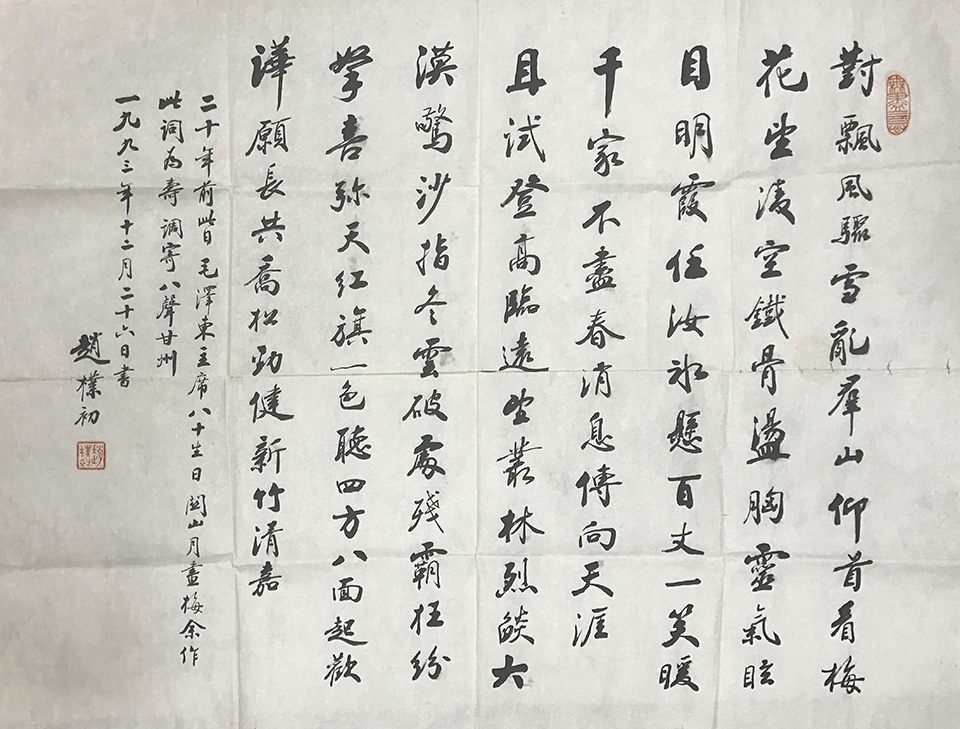 對飄風驟雪亂羣山仰首看梅
花坐淩空鐵骨盪胸靈氣眩
目明霞任汝冰懸百丈一笑暖
千家不盡春消息傳向天涯
且試登高臨遠坐叢林烈燄大
漠驚沙指冬雲破處殘霸枉紛
拏喜弥天红旗一色聽四方八面起歡
譁願長共喬松勁健新竹清嘉
二十年前此日毛澤東主席八十生日関山月畫梅余作
此詞为壽調寄八聲甘州
一九九三年十二月二十六日書
趙樸初